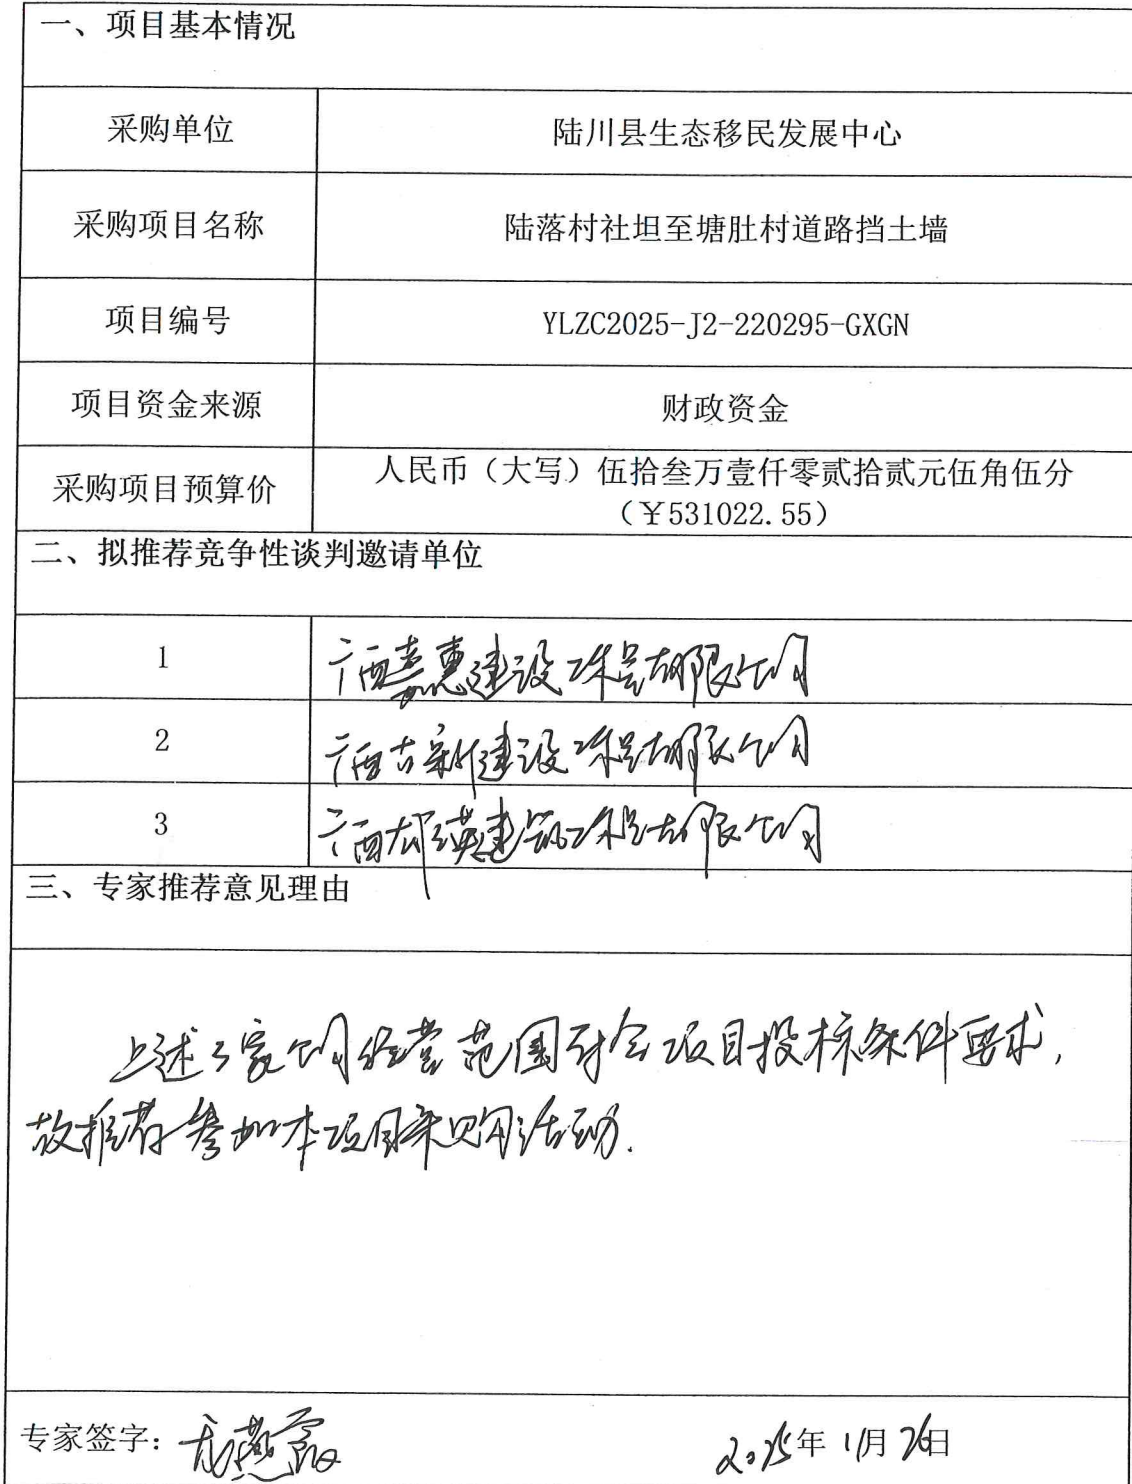 一、项目基本情况
采购单位 陆川县生态移民发展中心
采购项目名称 陆落村社坦至塘肚村道路挡土墙
项目编号 YLZC2025-J2-220295-GXGN
项目资金来源 财政资金
采购项目预算价 人民币（大写）伍拾叁万壹仟零贰拾贰元伍角伍分
（￥531022.55）
二、拟推荐竞争性谈判邀请单位
1 广西嘉惠建设工程有限公司
2 广西古新建设工程有限公司
3 广西邦瑛建筑工程有限公司
三、专家推荐意见理由
上述3家公司经营范围符合项目投标条件要求，
故推荐参加本项目采购活动.
专家签字： 2025年11月26日